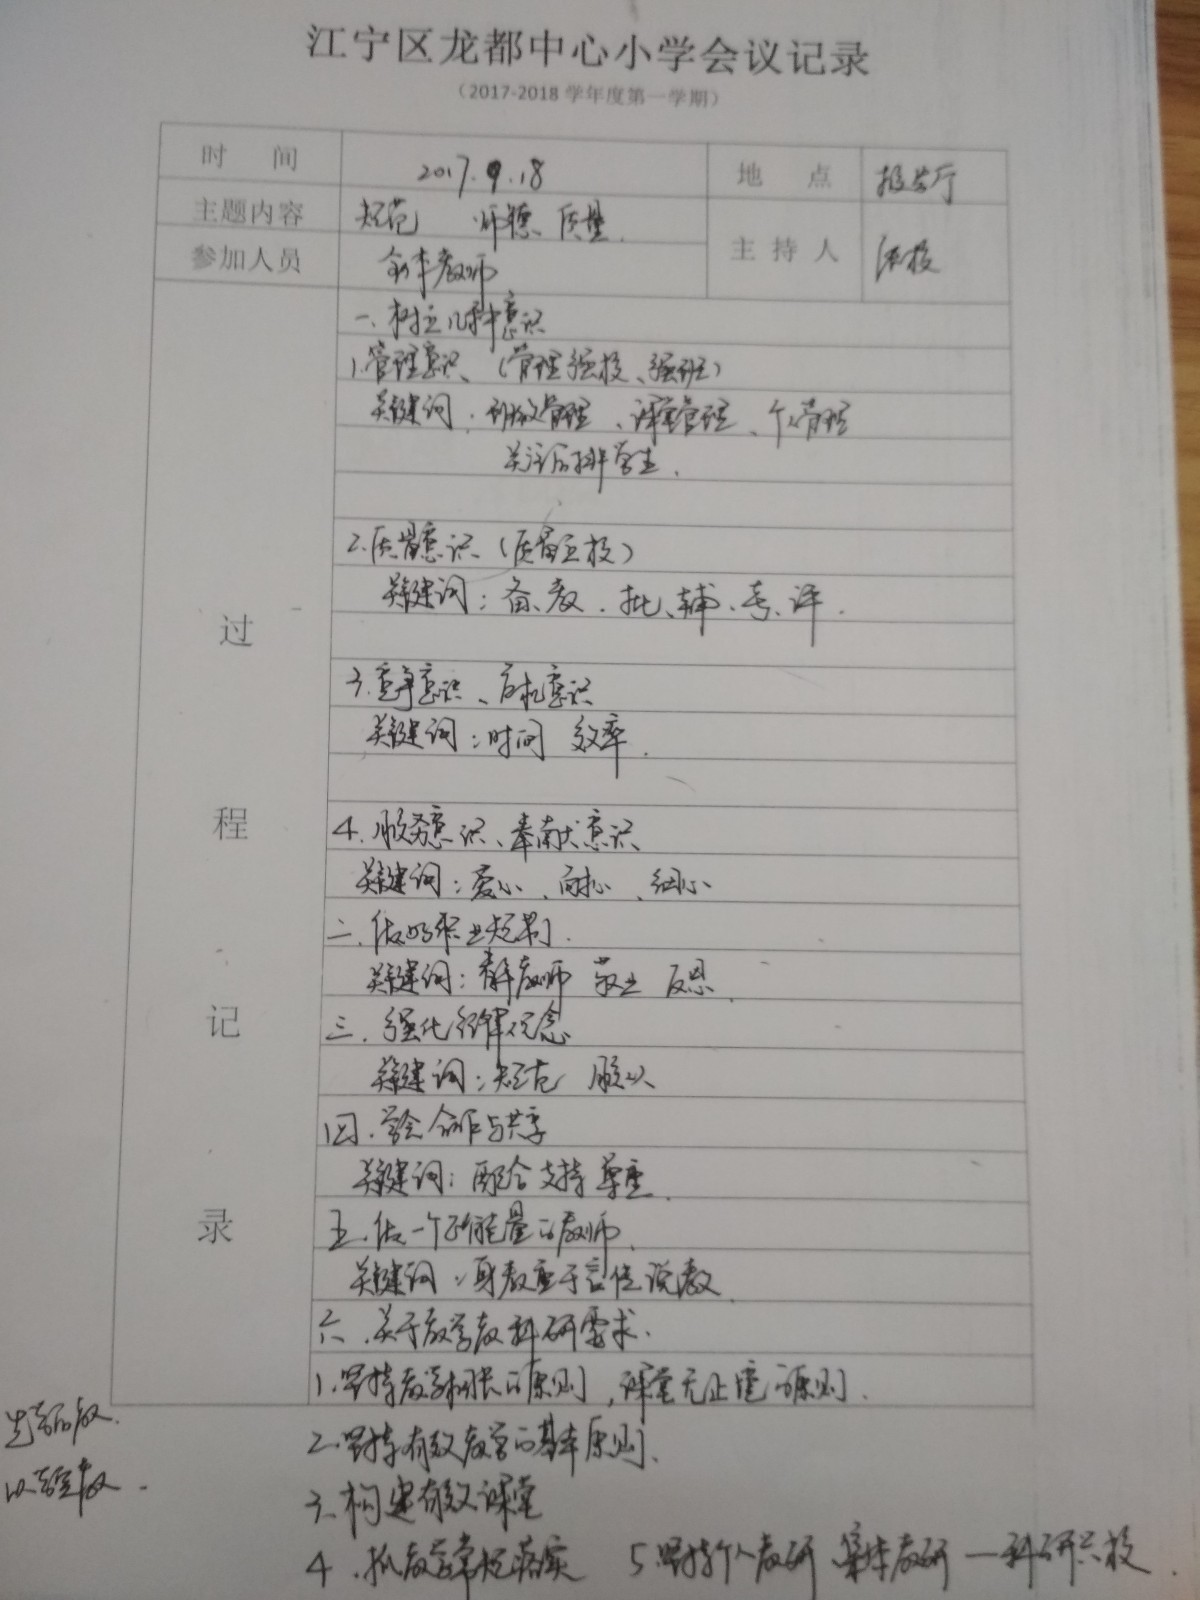 江宁区龙都中心小学会议记录
（2017-2018 学年度第一学期）
时 间 2017.9.18 地 点 报告厅
主题内容 规范 师德 质量.
参加人员 全体教师 主持人
过程记录
一、树立几种意识
1.管理意识、（管理强校、强班）
关键词：班级管理、课堂管理、个人管理
关注后排学生.
2.质量意识（质量立校）
关键词：备、教、批、辅、考、评.
3.竞争意识、危机意识
关键词：时间 效率.
4.服务意识、奉献意识
关键词：爱心、耐心、细心
二.做好职业规划.
关键词： 教师 敬业 反思.
三.强化纪律观念
关键词：规范 服从
四.学会合作与共享
关键词：配合 支持 尊重.
五.做一个正能量的教师.
关键词：身教重于言传说教.
六.关于教学教科研要求.
1.坚持教学相长的原则，课堂无止境的原则.
2.坚持有效教学的基本原则.
3.构建有效课堂
4.抓教学常规落实 5.坚持个人教研 集体教研—科研兴校.
先学后教.
以学定教.